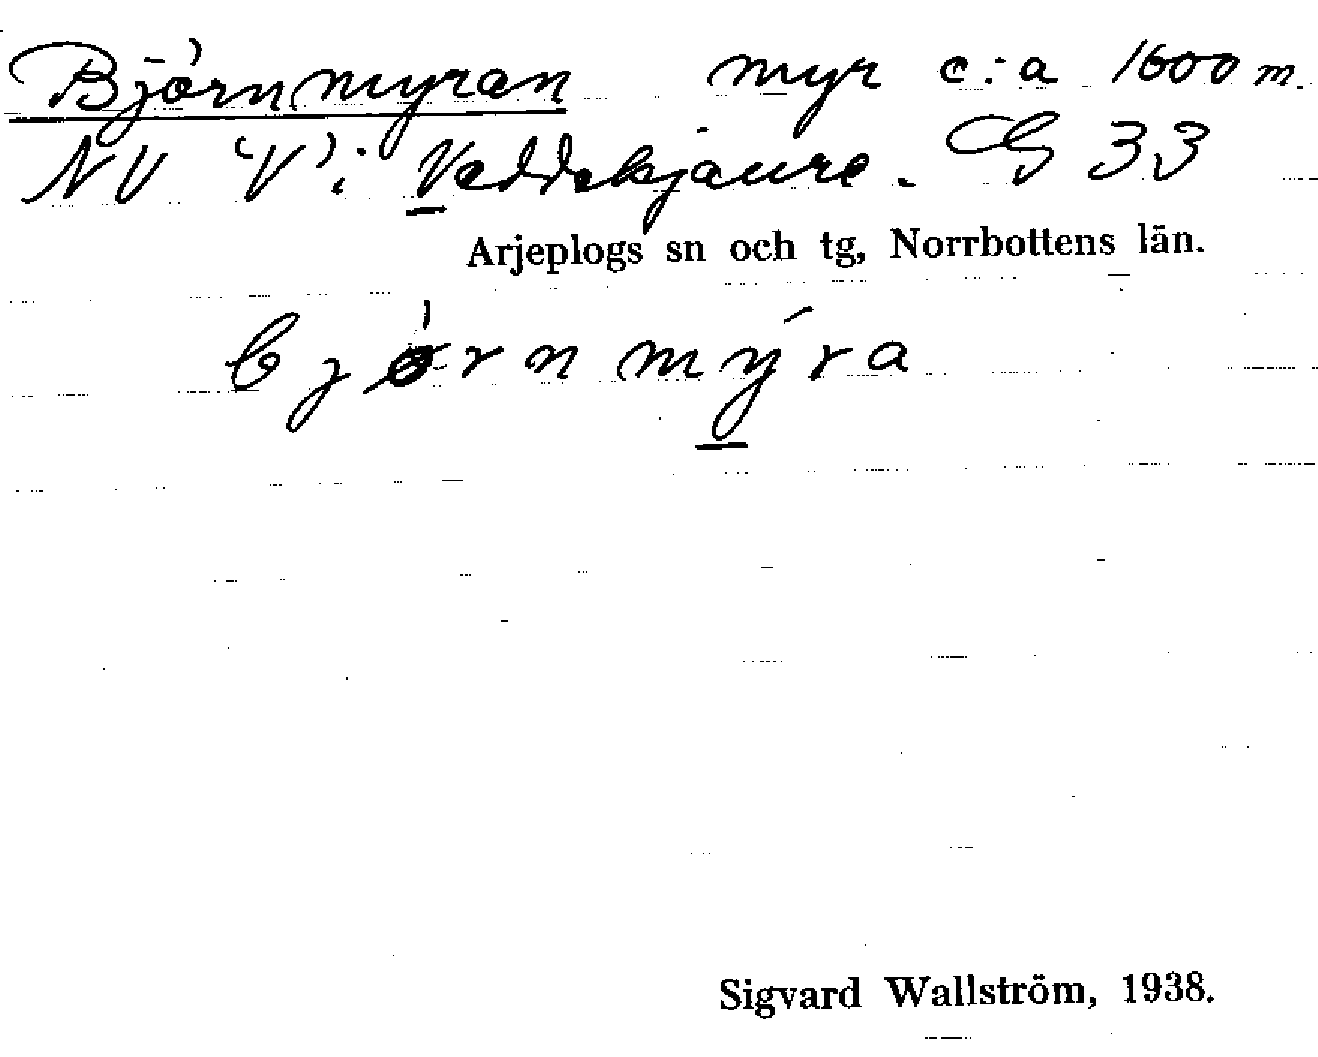 Björnmyran myr c:a 1600 m.
NV 'V' i Veddekjaure. G 33
Arjeplogs sn och tg, Norrbottens län.
bjørnmýra
Sigvard Wallström, 1938.